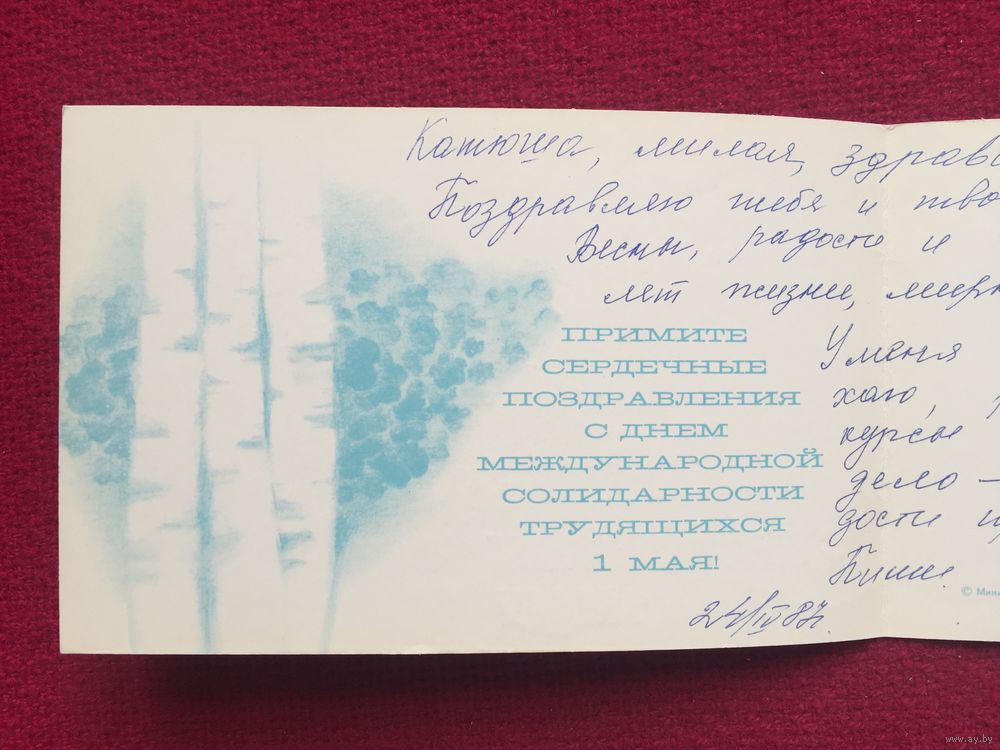 Катюша, милая, здравс
Поздравляю тебя и тво
Весны, радости и
лет жизни, мирн
ПРИМИТЕ
СЕРДЕЧНЫЕ
ПОЗДРАВЛЕНИЯ
С ДНЕМ
МЕЖДУНАРОДНОЙ
СОЛИДАРНОСТИ
ТРУДЯЩИХСЯ
1 МАЯ!
У меня
хаю,
курсы
дело –
дости
Пиши
© Мини
24/IV 87
www.ay.by